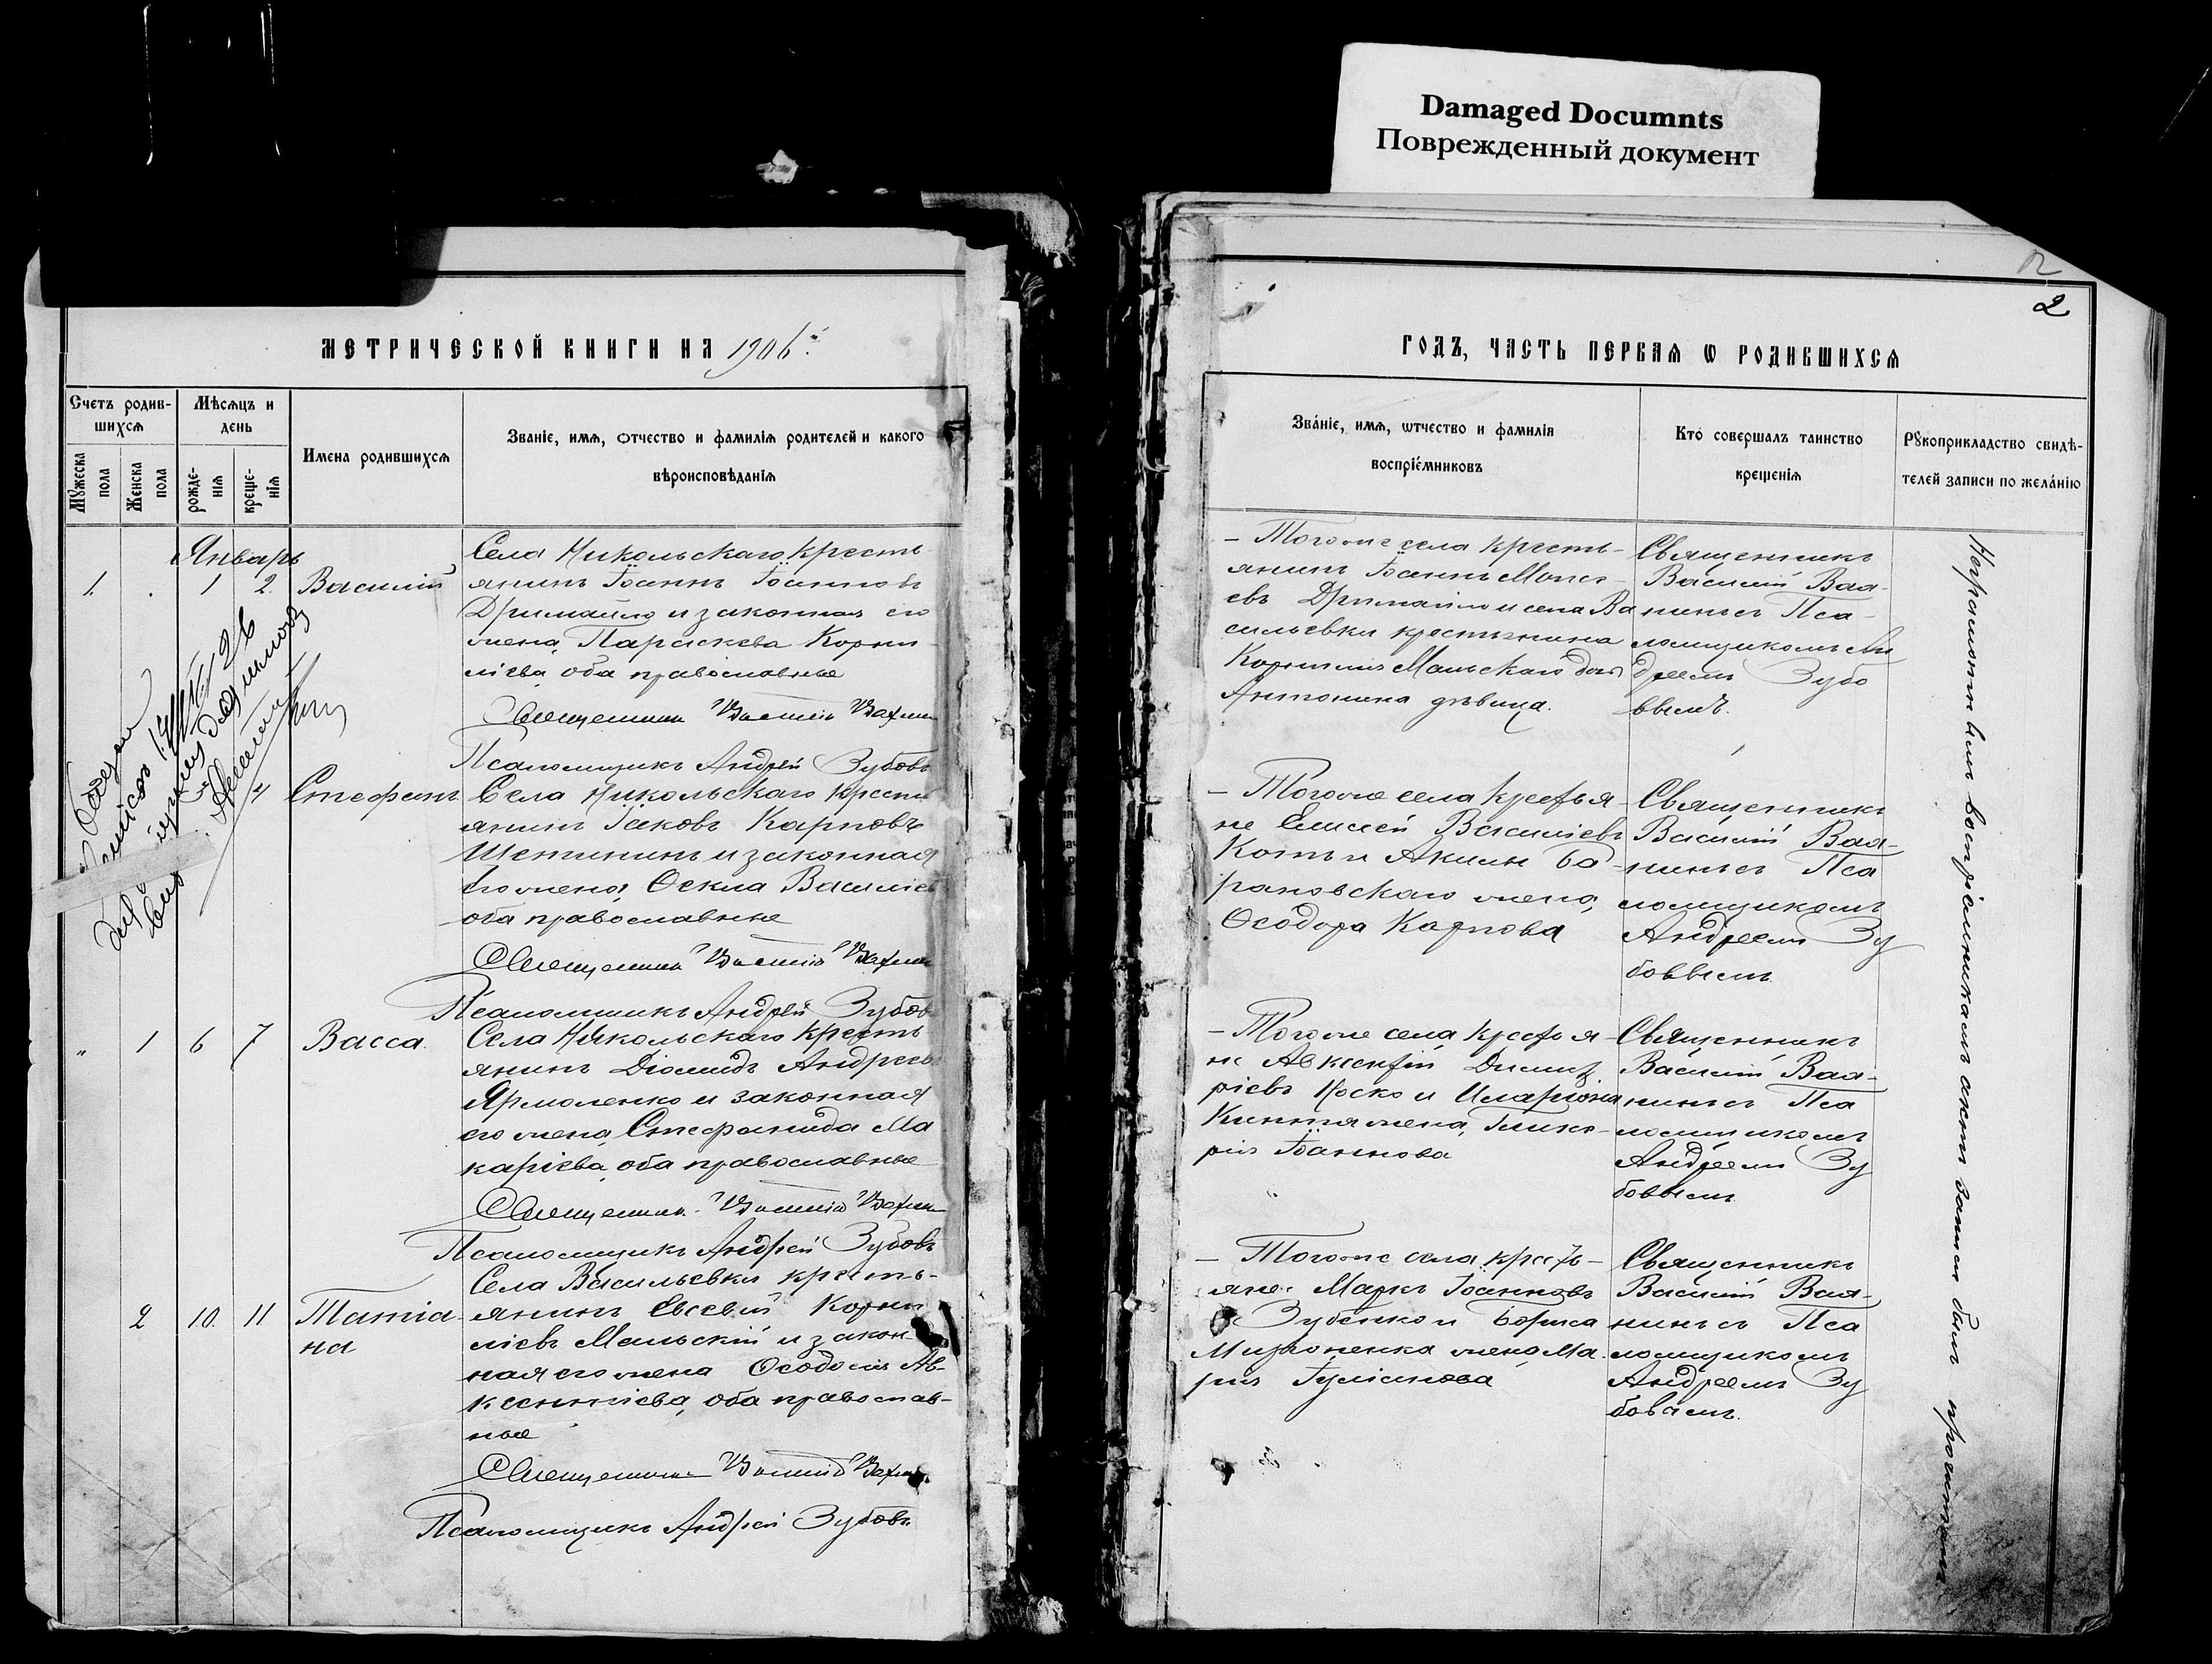 Damaged Documnts
Поврежденный документ
2
МЕТРИЧЕСКОЙ КНИГИ НА 1906й
ГОДЪ, ЧАСТЬ ПЕРВАѦ Ѡ РОДИВШИХСѦ
Счетъ родив-
шихсѧ
Мꙋжеска
пола
Женска
пола
Мѣсѧцъ и
день
рожде-
нїѧ
креще-
нїѧ
Имена родившихсѧ
Званїе, имѧ, отчество и фамилїѧ родителей и какого
вѣроисповѣданїѧ
Зва́нїе, имѧ, ѡтчество и фамилїя
воспрїе́мниковъ
Кто́ совершалъ таинство
крещенїѧ
Рꙋкоприкладство свидѣ-
телей записи по жела́нїю
Январь
1. . 1 2. Василій
Села Никольскаго кресть-
янинъ Іоаннъ Іоанновъ
Дримайло и законная его
жена, Параскева Корни-
ліева, оба православные
Священникъ Василій
Псаломщикъ Андрей Зубовъ
– Тогоже села кресть-
янинъ Іоаннъ Моисе-
евъ Дримайло и села Ва
сильевки крестьянина
Корнилія Мальскаго дочь
Антонина дѣвица.
Священникъ
Василій
Пса-
ломщикомъ Ан
дреемъ Зубо
ввымъ.
4 Стефанъ
Села Никольскаго кресть
янинъ Іаковъ Карповъ
Шетининъ и законная
его жена, Ѳекла Василіев
оба православные
Священникъ Василій
Псаломщикъ Андрей Зубовъ
– Тогоже села крестья-
не Елисей Василіевъ
Котъ и Акима Ба-
рановскаго жена,
Ѳеодора Карпова
Священникъ
Василій
Пса
ломщикомъ
Андреемъ Зу
боввымъ.
„ 1 6 7 Васса.
Села Никольскаго кресть
янинъ Діомидъ Андреевъ
Ярмоленко и законная
его жена, Стефанида Ма
каріева, оба православные
Священникъ Василій
Псаломщикъ Андрей Зубовъ
– Тогоже села крестья-
не Авксентій Димит
ріевъ Носко и Иларіона
жена, Глике-
рія Іоаннова
Священникъ
Василій
Пса
ломщикомъ
Андреемъ Зу
боввымъ
2 10. 11 Татіа-
на
Села Васильевки кресть-
янинъ Евсевій Корни
ліевъ Мальскій и закон
ная его жена Ѳеодосія Ав-
ксентіева, оба православ-
ные
Священникъ Василій
Псаломщикъ Андрей Зубовъ.
– Тогоже села кресть-
яне: Маркъ Іоанновъ
Зубенко и Бориса
Мироненка жена Ма-
рія Іуліанова
Священникъ
Василій
Пса
ломщикомъ
Андреемъ Зу
бовымъ.
Неграмотнымъ воспріемникамъ актъ записи былъ прочитанъ